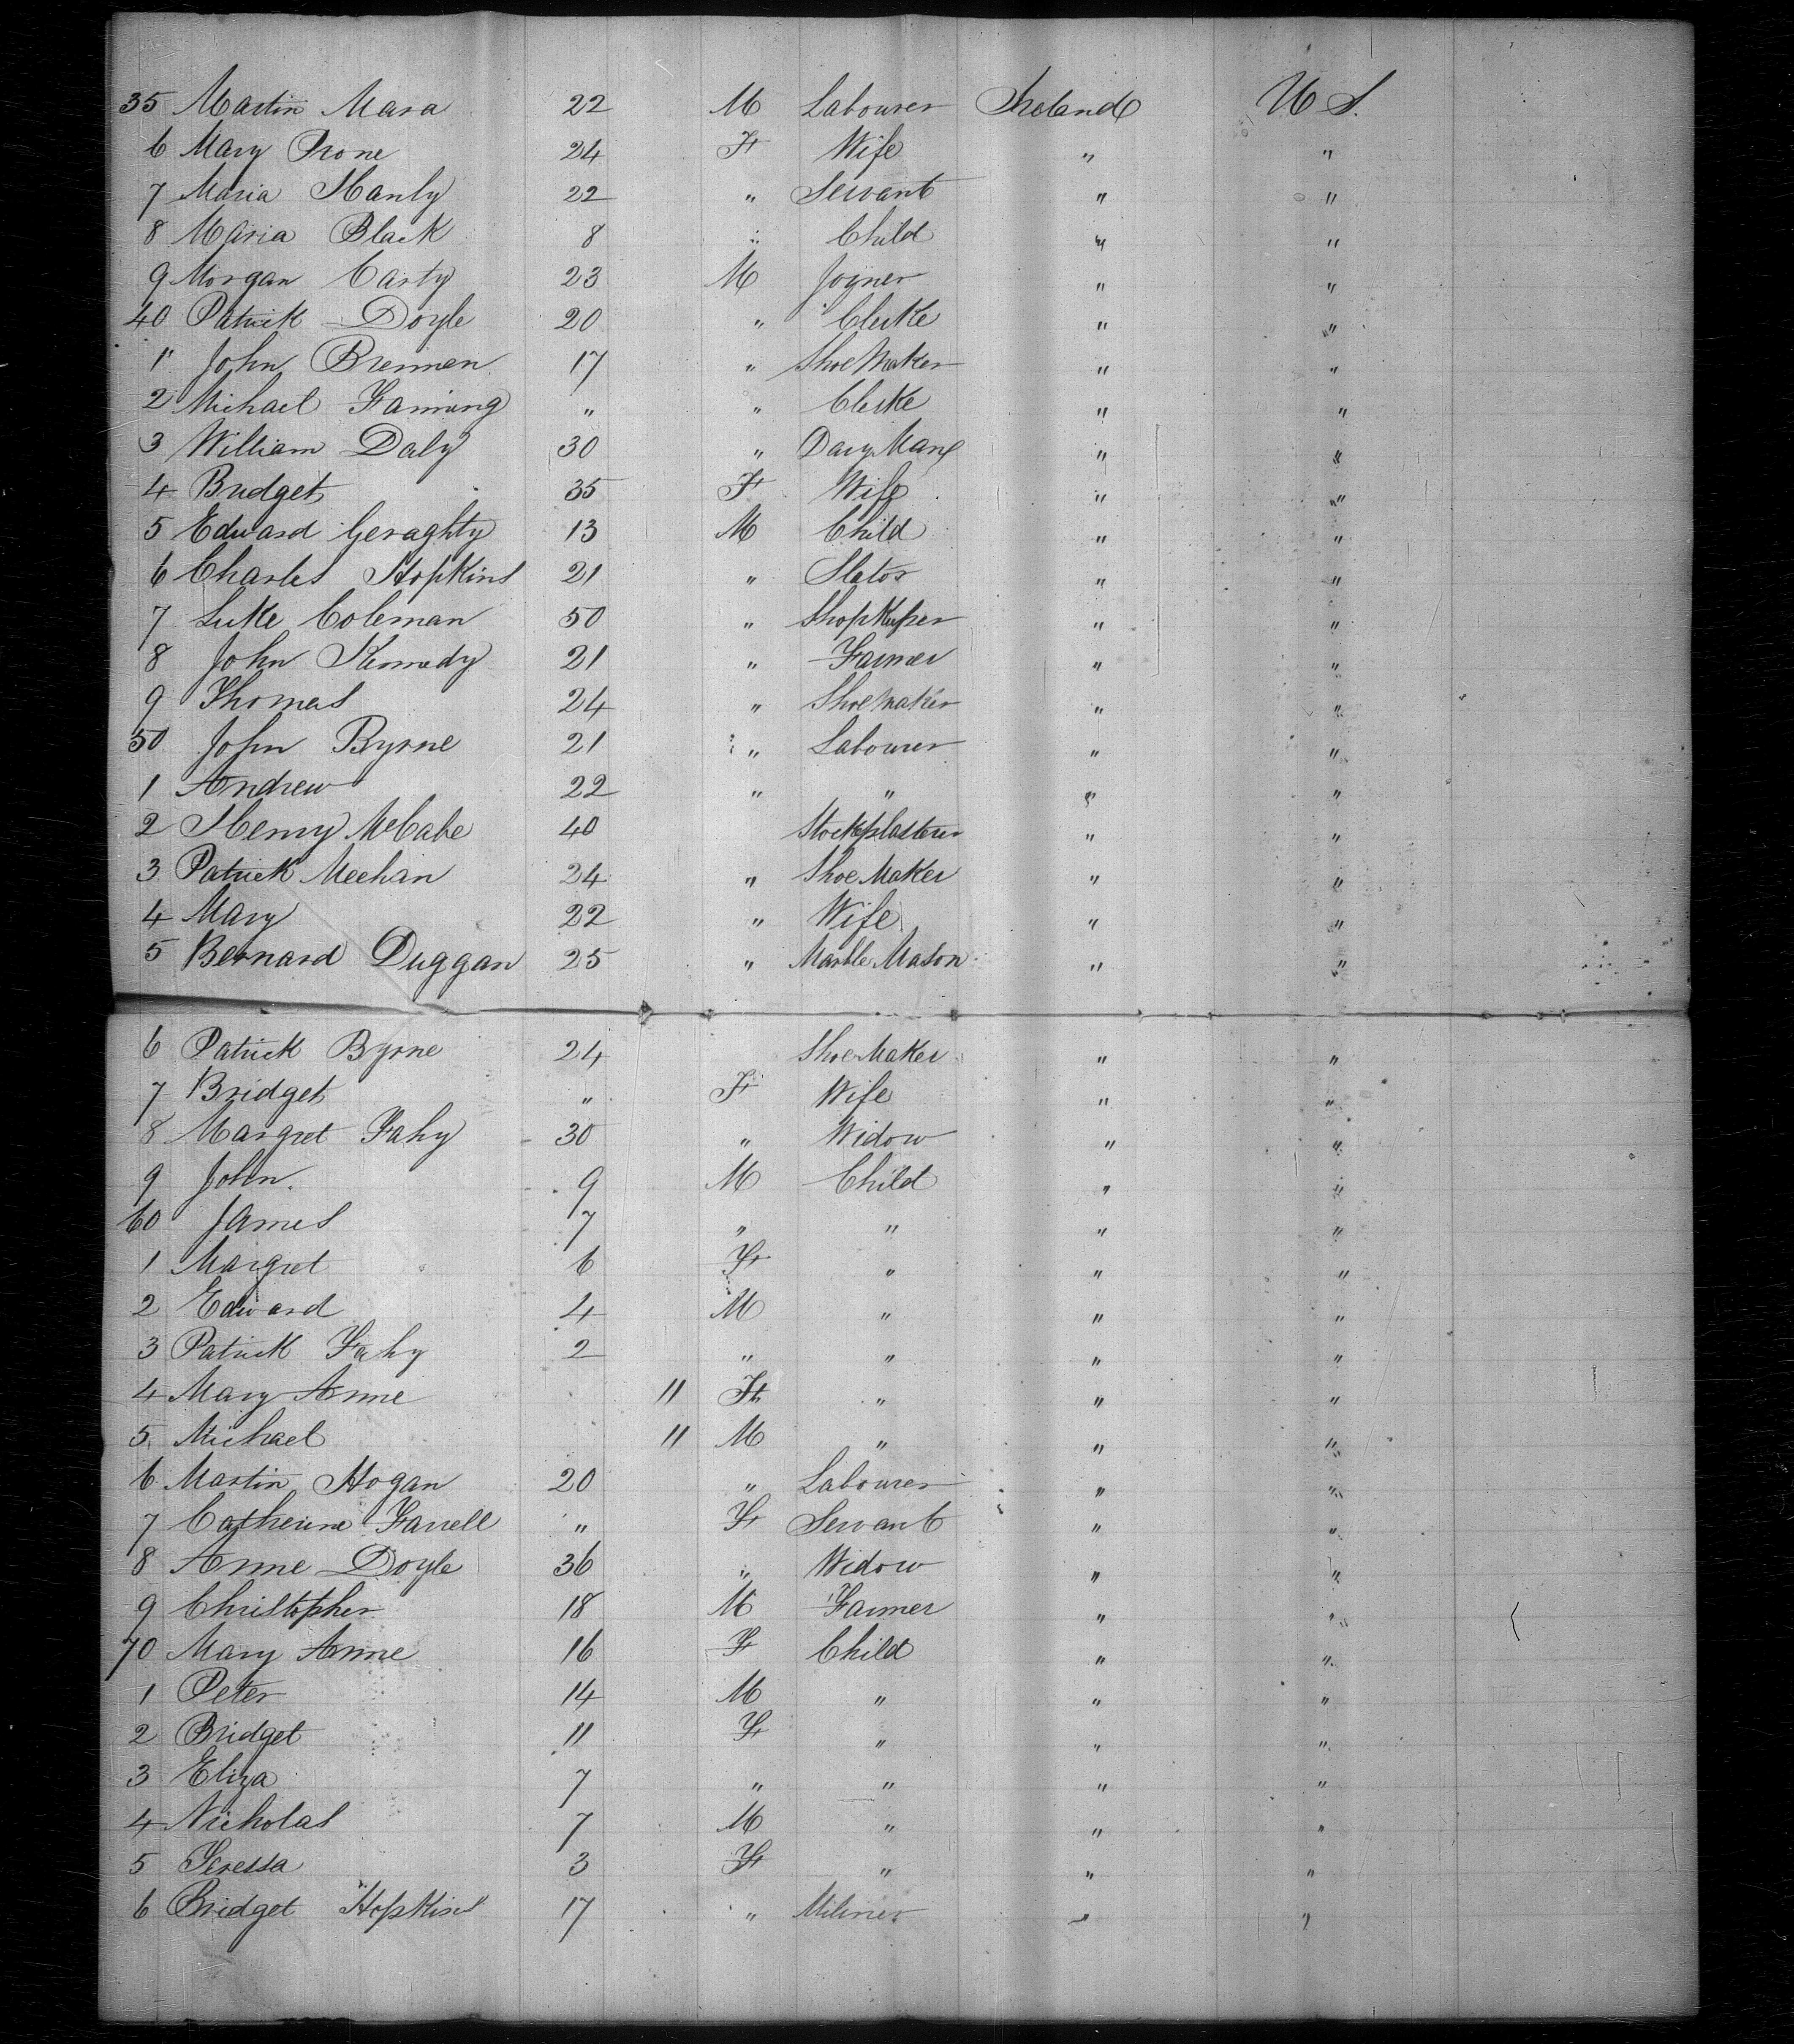 35 Martin Mara 22 M Labourer Ireland U S.
6 Mary Prone 24 F Wife " "
7 Maria Hanly 22 " Servant " "
8 Maria Black 8 " Child " "
9 Morgan Carty 23 M Joyner " "
40 Patrick Doyle 20 " Clerke " "
1 John Brennen 17 " Shoe Maker " "
2 Michael Fanning " " Clerke " "
3 William Daly 30 " Dary Man " "
4 Bridget 35 F Wife " "
5 Edward Geraghty 13 M Child " "
6 Charles Hopkins 21 " Slator " "
7 Luke Coleman 50 " Shop Keper " "
8 John Kennedy 21 " Farmer " "
9 Thomas 24 " Shoe Maker " "
50 John Byrne 21 " Labourer " "
1 Andrew 22 " " " "
2 Henry McCabe 40 Stockplasterer " "
3 Patrick Meehan 24 " Shoe Maker " "
4 Mary 22 " Wife " "
5 Bernard Duggan 25 " Marble Mason " "
6 Patrick Byrne 24 Shoe Maker " "
7 Bridget " F Wife " "
8 Margret Fahy 30 " Widow " "
9 John 9 M Child " "
60 James 7 " " " "
1 Margret 6 F " " "
2 Edward 4 M " " "
3 Patrick Fahy 2 " " " "
4 Mary Anne 11 F " " "
5 Michael 11 M " " "
6 Martin Hogan 20 " Labourer " "
7 Catherine Farrell " F Servant " "
8 Anne Doyle 36 " Widow " "
9 Christopher 18 M Farmer " "
70 Mary Anne 16 F Child " "
1 Peter 14 M " " "
2 Bridget 11 F " " "
3 Eliza 7 " " " "
4 Nicholas 7 M " " "
5 Teressa 3 F " " "
6 Bridget Hopkins 17 " Miliner " "